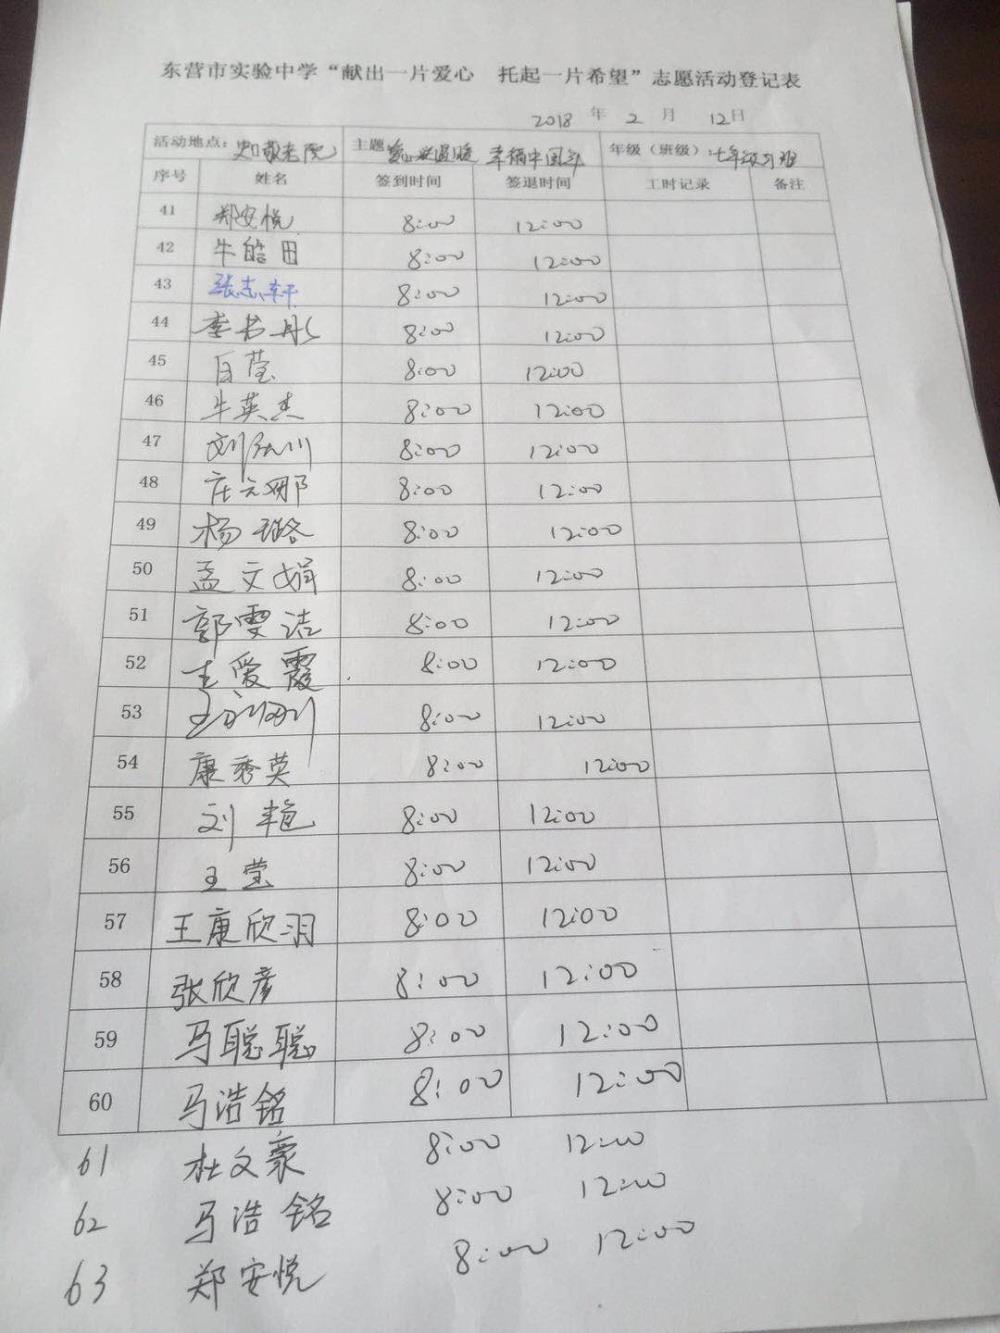 东营市实验中学“献出一片爱心 托起一片希望”志愿活动登记表
2018 年 2 月 12日
活动地点: 史口敬老院 主题 温暖 幸福中国年 年级（班级）:七年级 班
序号 姓名 签到时间 签退时间 工时记录 备注
41 郑安悦 8:00 12:00
42 牛皓田 8:00 12:00
43 张志轩 8:00 12:00
44 李书彤 8:00 12:00
45 白莹 8:00 12:00
46 牛英杰 8:00 12:00
47 刘 川 8:00 12:00
48 庄元娜 8:00 12:00
49 杨璐 8:00 12:00
50 孟文娟 8:00 12:00
51 郭雯洁 8:00 12:00
52 王爱霞 8:00 12:00
53 王 8:00 12:00
54 康秀英 8:00 12:00
55 刘艳 8:00 12:00
56 王莹 8:00 12:00
57 王康欣羽 8:00 12:00
58 张欣彦 8:00 12:00
59 马聪聪 8:00 12:00
60 马浩铭 8:00 12:00
61 杜文豪 8:00 12:00
62 马浩铭 8:00 12:00
63 郑安悦 8:00 12:00